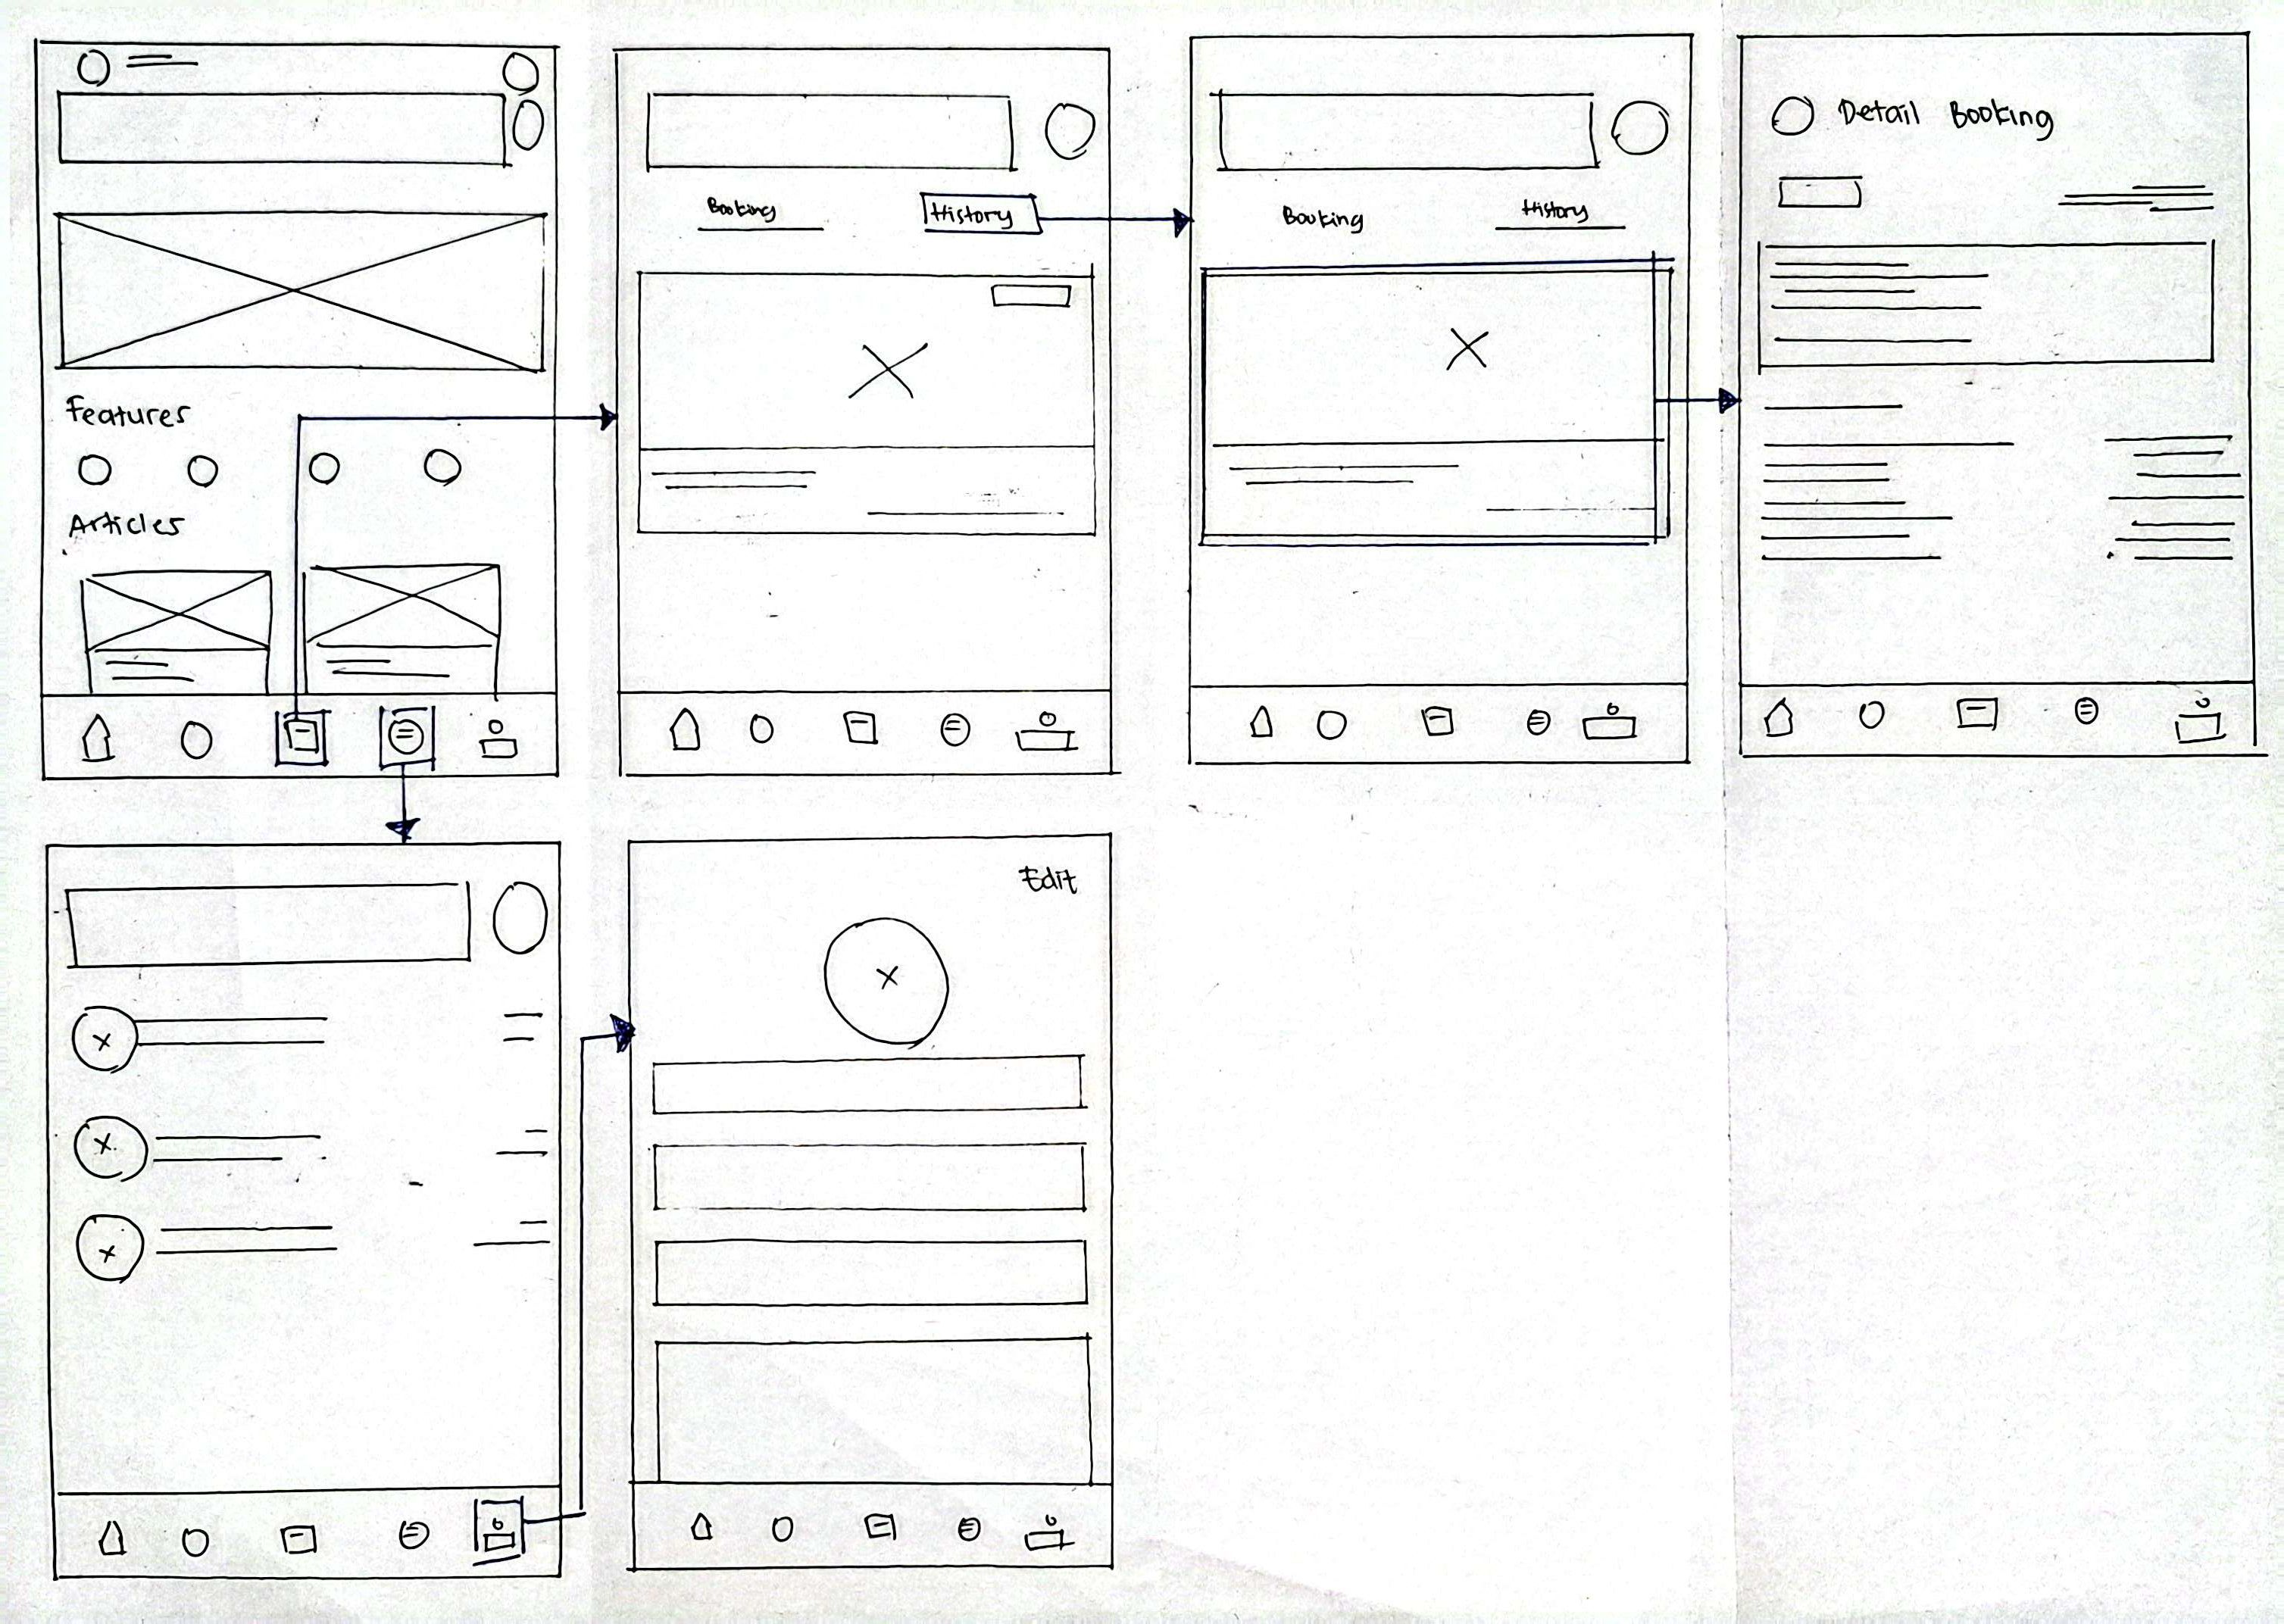 Features
Articles
Booking History
Booking History
Detail Booking
Edit